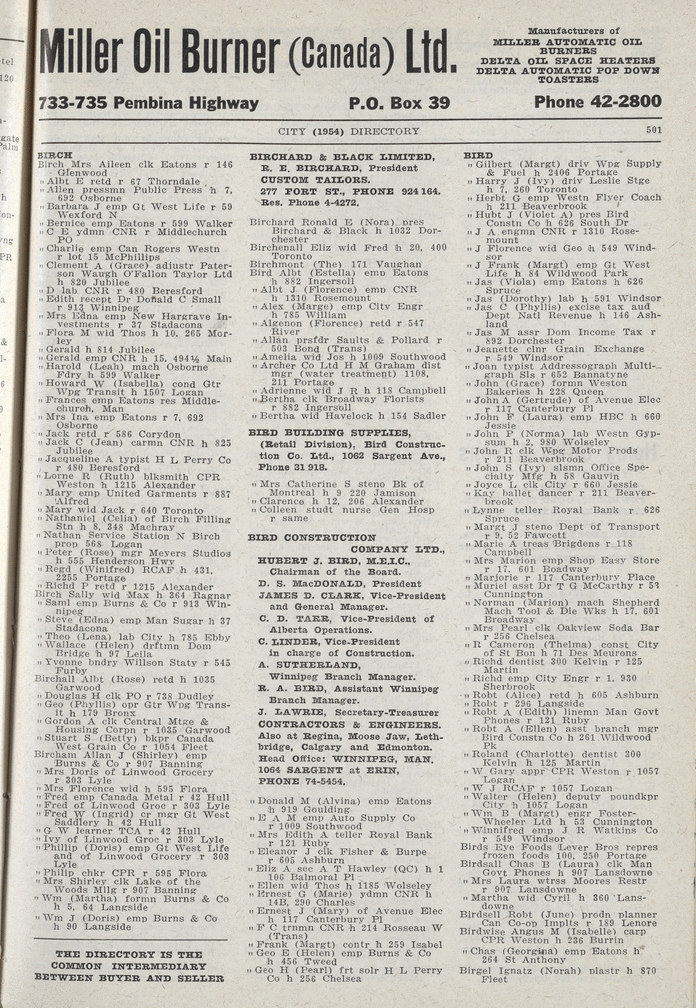 Miller Oil Burner (Canada) Ltd.
Manufacturers of
MILLER AUTOMATIC OIL
BURNERS
DELTA OIL SPACE HEATERS
DELTA AUTOMATIC POP DOWN
TOASTERS
733-735 Pembina Highway P.O. Box 39 Phone 42-2800
CITY (1954) DIRECTORY 501
BIRCH
Birch Mrs Aileen clk Eatons r 146
Glenwood
" Albt E retd r 67 Thorndale
" Allen pressmn Public Press h 7,
692 Osborne
" Barbara J emp Gt West Life r 59
Wexford N
" Bernice emp Eatons r 599 Walker
" C E ydmn CNR r Middlechurch
PO
" Charlie emp Can Rogers Westn
r lot 15 McPhillips
" Clement A (Grace) adjustr Pater-
son Waugh O'Fallon Taylor Ltd
h 820 Jubilee
" D lab CNR r 480 Beresford
" Edith recept Dr Donald C Small
r 913 Winnipeg
" Mrs Edna emp New Hargrave In-
vestments r 37 Stadacona
" Flora M wid Thos h 10, 265 Mor-
ley
" Gerald h 814 Jubilee
" Gerald emp CNR h 15, 494½ Main
" Harold (Leah) mach Osborne
Fdry h 599 Walker
" Howard W (Isabella) cond Gtr
Wpg Transit h 1507 Logan
" Frances emp Eatons res Middle-
church, Man
" Mrs Ina emp Eatons r 7, 692
Osborne
" Jack retd r 586 Corydon
" Jack C (Jean) carmn CNR h 825
Jubilee
" Jacqueline A typist H L Perry Co
r 480 Beresford
" Lorne R (Ruth) blksmith CPR
Weston h 1215 Alexander
" Mary emp United Garments r 887
Alfred
" Mary wid Jack r 640 Toronto
" Nathaniel (Celia) of Birch Filling
Stn h 8, 348 Machray
" Nathan Service Station N Birch
prop 568 Logan
" Peter (Rose) mgr Meyers Studios
h 555 Henderson Hwy
" Regd (Winifred) RCAF h 431,
2255 Portage
" Richd P retd r 1215 Alexander
Birch Sally wid Max h 364 Ragnar
" Saml emp Burns & Co r 913 Win-
nipeg
" Steve (Edna) emp Man Sugar h 37
Stadacona
" Theo (Lena) lab City h 785 Ebby
" Wallace (Helen) drftmn Dom
Bridge h 97 Leila
" Yvonne bndry Willson Staty r 545
Furby
Birchall Albt (Rose) retd h 1035
Garwood
" Douglas H clk PO r 738 Dudley
" Geo (Phyllis) opr Gtr Wpg Trans-
it h 179 Bronx
" Gordon A clk Central Mtge &
Housing Corpn r 1035 Garwood
" Stuart S (Betty) bkpr Canada
West Grain Co r 1054 Fleet
Bircham Allan J (Shirley) emp
Burns & Co r 907 Banning
" Mrs Doris of Linwood Grocery
r 303 Lyle
" Mrs Florence wid h 595 Flora
" Fred emp Canada Metal r 42 Hull
" Fred of Linwood Groc r 303 Lyle
" Fred W (Ingrid) cr mgr Gt West
Saddlery h 42 Hull
" G W learner TCA r 42 Hull
" Ivy of Linwood Groc r 303 Lyle
" Phillip (Doris) emp Gt West Life
and of Linwood Grocery r 303
Lyle
" Philip chkr CPR r 595 Flora
" Mrs Shirley clk Lake of the
Woods Millg r 907 Banning
" Wm (Martha) formn Burns & Co
h 5, 64 Langside
" Wm J (Doris) emp Burns & Co
h 90 Langside
THE DIRECTORY IS THE
COMMON INTERMEDIARY
BETWEEN BUYER AND SELLER
BIRCHARD & BLACK LIMITED,
R. E. BIRCHARD, President
CUSTOM TAILORS.
277 FORT ST., PHONE 924 164.
Res. Phone 4-4272.
Birchard Ronald E (Nora) pres
Birchard & Black h 1032 Dor-
chester
Birchenall Eliz wid Fred h 20, 400
Toronto
Birchmont (The) 171 Vaughan
Bird Albt (Estella) emp Eatons
h 882 Ingersoll
" Albt J (Florence) emp CNR
h 1310 Rosemount
" Alex (Marge) emp City Engr
h 785 William
" Algenon (Florence) retd r 547
River
" Allan prsfdr Saults & Pollard r
503 Bond (Trans)
" Amelia wid Jos h 1009 Southwood
" Archer Co Ltd H M Graham dist
mgr (water treatment) 1108,
211 Portage
" Adrienne wid J R h 118 Campbell
" Bertha clk Broadway Florists
r 882 Ingersoll
" Bertha wid Havelock h 154 Sadler
BIRD BUILDING SUPPLIES,
(Retail Division), Bird Construc-
tion Co. Ltd., 1062 Sargent Ave.,
Phone 31 918.
" Mrs Catherine S steno Bk of
Montreal h 9 220 Jamison
" Clarence h 12, 206 Alexander
" Colleen studt nurse Gen Hosp
r same
BIRD CONSTRUCTION
COMPANY LTD.,
HUBERT J. BIRD, M.E.I.C.,
Chairman of the Board.
D. S. MacDONALD, President
JAMES D. CLARK, Vice-President
and General Manager.
C. D. TARR, Vice-President of
Alberta Operations.
C. LINDER, Vice-President
in charge of Construction.
A. SUTHERLAND,
Winnipeg Branch Manager.
R. A. BIRD, Assistant Winnipeg
Branch Manager.
J. LAWRIE, Secretary-Treasurer
CONTRACTORS & ENGINEERS.
Also at Regina, Moose Jaw, Leth-
bridge, Calgary and Edmonton.
Head Office: WINNIPEG, MAN.
1064 SARGENT at ERIN,
PHONE 74-5454.
" Donald M (Alvina) emp Eatons
h 919 Goulding
" E A M emp Auto Supply Co
r 1009 Southwood
" Mrs Edith A teller Royal Bank
r 121 Ruby
" Eleanor J clk Fisher & Burpe
r 605 Ashburn
" Eliz A sec A T Hawley (QC) h 1
106 Balmoral Pl
" Ellen wid Thos h 1185 Wolseley
" Ernest G (Marie) ydmn CNR h
14B, 290 Charles
" Ernest J (Mary) of Avenue Elec
h 117 Canterbury Pl
" F C trnmn CNR h 214 Rosseau W
(Trans)
" Frank (Margt) contr h 259 Isabel
" Geo E (Helen) emp Burns & Co
h 456 Tweed
" Geo H (Pearl) frt solr H L Perry
Co h 256 Chelsea
BIRD
" Gilbert (Margt) driv Wpg Supply
& Fuel h 2406 Portage
" Harry J (Ivy) driv Leslie Stge
h 7, 260 Toronto
" Herbt G emp Westn Flyer Coach
h 211 Beaverbrook
" Hubt J (Violet A) pres Bird
Constn Co h 626 South Dr
" J A engnn CNR r 1310 Rose-
mount
" J Florence wid Geo h 549 Wind-
sor
" J Frank (Margt) emp Gt West
Life h 84 Wildwood Park
" Jas (Viola) emp Eatons h 626
Spruce
" Jas (Dorothy) lab h 591 Windsor
" Jas C (Phyllis) excise tax aud
Dept Natl Revenue h 146 Ash-
land
" Jas M assr Dom Income Tax r
892 Dorchester
" Jeanette clnr Grain Exchange
r 549 Windsor
" Joan typist Addressograph Multi-
graph Sls r 652 Bannatyne
" John (Grace) formn Weston
Bakeries h 228 Queen
" John A (Gertrude) of Avenue Elec
r 117 Canterbury Pl
" John F (Laura) emp HBC h 660
Jessie
" John P (Norma) lab Westn Gyp-
sum h 2, 980 Wolseley
" John R clk Wpg Motor Prods
r 211 Beaverbrook
" John S (Ivy) slsmn Office Spe-
cialty Mfg h 58 Gauvin
" Joyce L clk City r 660 Jessie
" Kay ballet dancer r 211 Beaver-
brook
" Lynne teller Royal Bank r 626
Spruce
" Margt J steno Dept of Transport
r 9, 52 Fawcett
" Marie A treas Brigdens r 118
Campbell
" Mrs Marion emp Shop Easy Store
r 17, 601 Broadway
" Marjorie r 117 Canterbury Place
" Muriel asst Dr T G McCarthy r 53
Cunnington
" Norman (Marion) mach Shepherd
Mach Tool & Die Wks h 17, 601
Broadway
" Mrs Pearl clk Oakview Soda Bar
r 256 Chelsea
" R Cameron (Thelma) const City
of St Bon h 71 Des Meurons
" Richd dentist 300 Kelvin r 125
Martin
" Richd emp City Engr r 1, 930
Sherbrook
" Robt (Alice) retd h 605 Ashburn
" Robt r 296 Langside
" Robt A (Edith) linemn Man Govt
Phones r 121 Ruby
" Robt A (Ellen) asst branch mgr
Bird Constn Co h 261 Wildwood
Pk
" Roland (Charlotte) dentist 300
Kelvin h 125 Martin
" W Gary appr CPR Weston r 1057
Logan
" W J RCAF r 1057 Logan
" Walter (Helen) deputy poundkpr
City h 1057 Logan
" Wm B (Margt) engr Foster-
Wheeler Ltd h 53 Cunnington
" Winnifred emp J R Watkins Co
r 549 Windsor
Birds Eye Foods Lever Bros repres
frozen foods 100, 250 Portage
Birdsall Chas B (Laura) clk Man
Govt Phones h 907 Lansdowne
" Mrs Laura wtrss Moores Restr
r 907 Lansdowne
" Martha wid Cyril h 360 Lans-
downe
Birdsell Robt (June) prodn planner
Can Co-op Implts r 189 Lenore
Birdwise Angus M (Isabelle) carp
CPR Weston h 236 Burrin
" Chas (Georgina) emp Eatons h
264 St Anthony
Birgel Ignatz (Norah) plastr h 870
Fleet